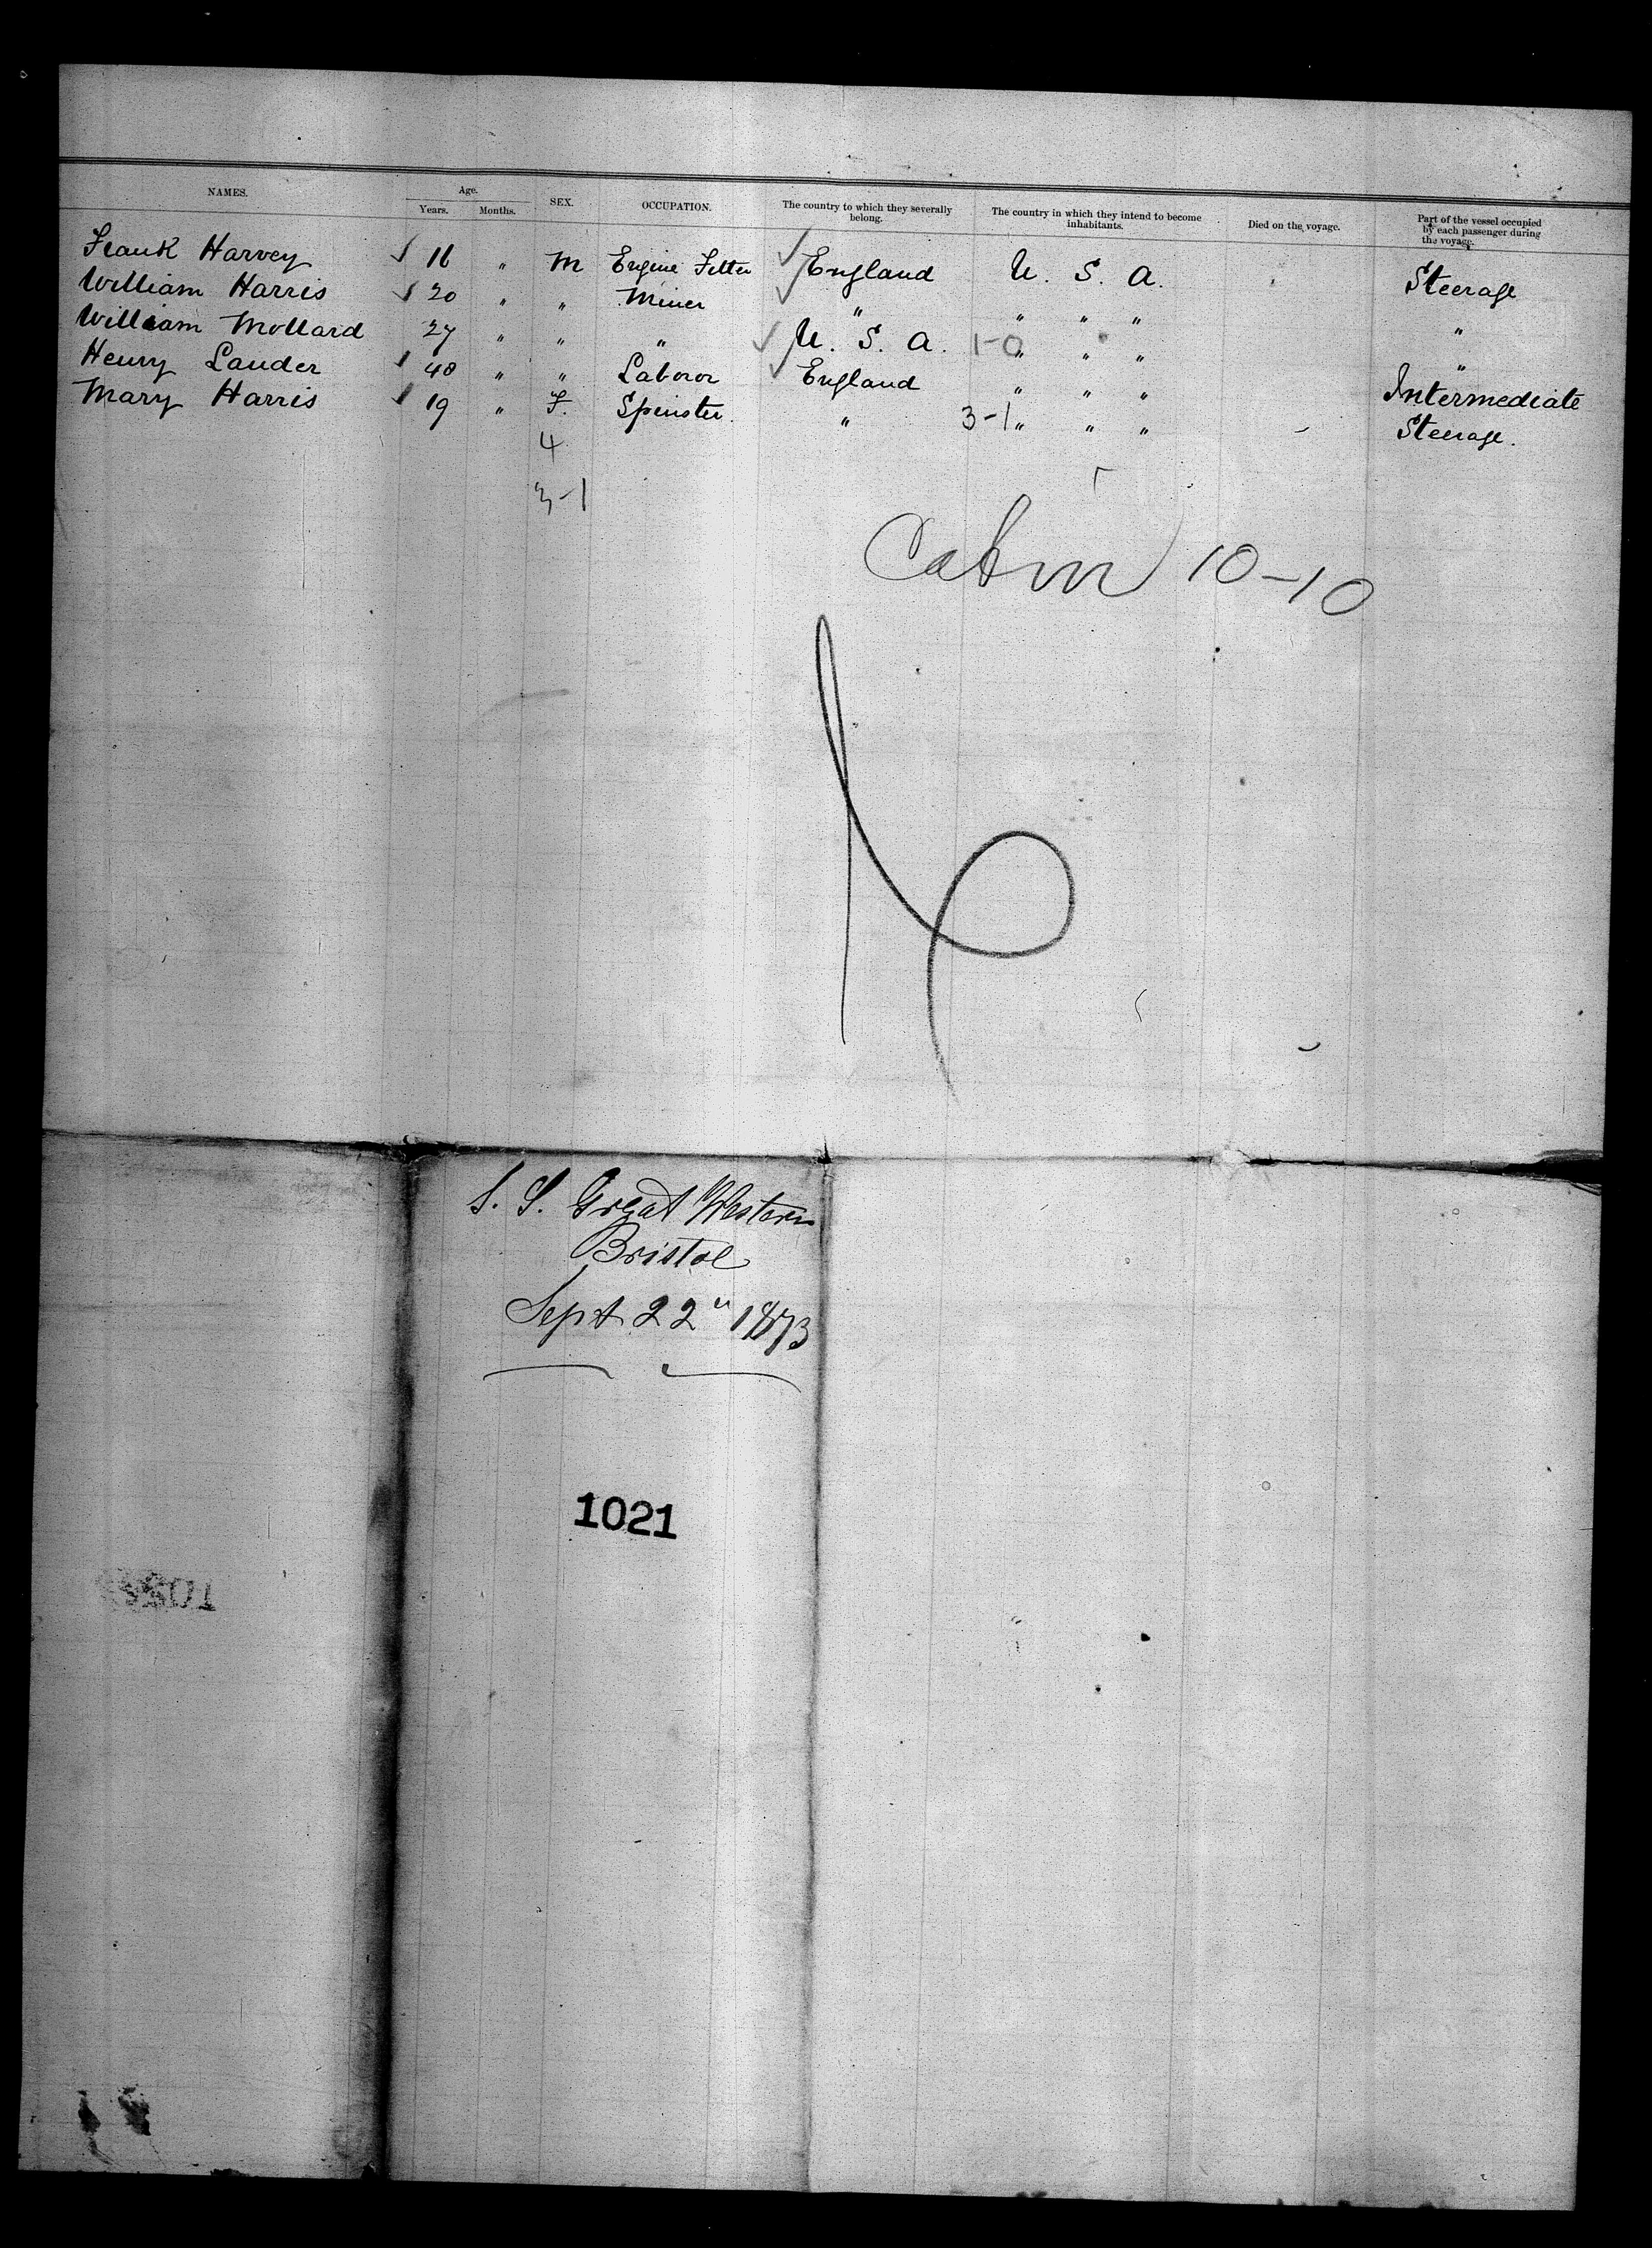 NAMES. Age. SEX. OCCUPATION. The country to which they severally belong. The country in which they intend to become inhabitants. Died on the voyage. Part of the vessel occupied by each passenger during the voyage.
Years. Months.
Frank Harvey ✓ 16 " M Engine Fitter ✓ England U. S. A. Steerage
William Harris ✓ 20 " " Miner ✓ " " " " "
William Mollard 27 " " " ✓ U. S. A. 1-0 " " " "
Henry Lauder ✓ 40 " " Laboror ✓ England " " " Intermediate
Mary Harris ✓ 19 " F. Spinster. " 3-1 " " " Steerage.
4
3-1
Cabin 10-10
S. S. Great Western
Bristol
Sept 22" 1873
1021